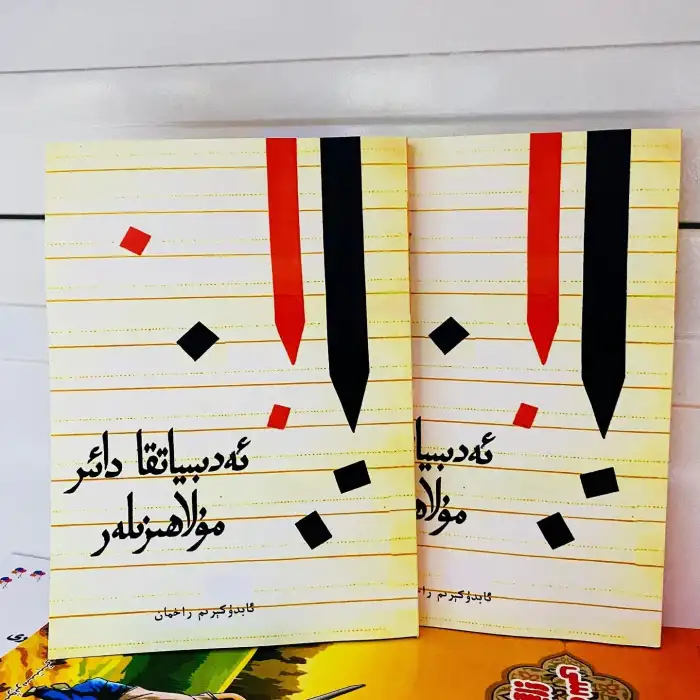 ئەدىبىياتقا دائىر
مۇلاھىزىلەر
ئابدۇكېرىم راخمان
ئەدىبىيا
مۇلاھ
ئابدۇكېرىم را